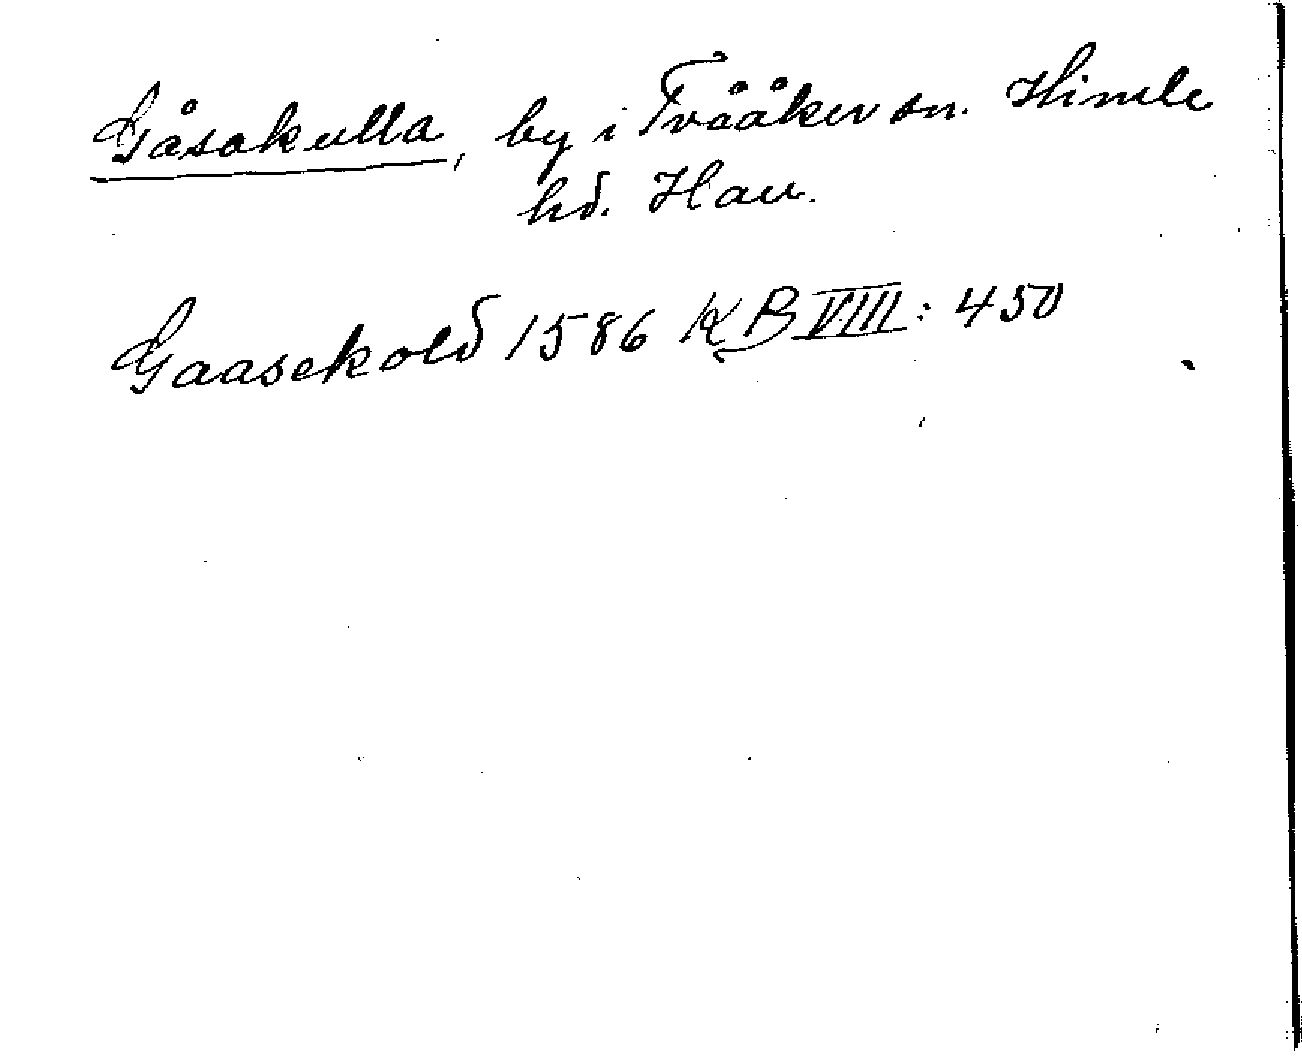 Gåsakulla, by i Tvååker sn. Himle
hd. Hall.
Gaasekold 1586 KB VIII: 450